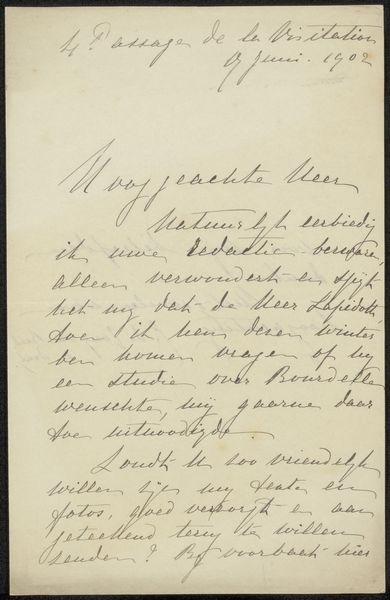 4 Passage de la Visitation
9 Juni. 1902
Hooggeachte Heer
Natuurlijk eerbiedig
ik uwe redactie-bezwaren,
alleen verwondert en spijt
het mij dat de Heer Lapidoth
toen ik hem dezen winter
ben komen vragen of hij
een studie over Bourdelle
wenschte, mij gaarne daar
toe uitnoodigde.
Zoudt U zoo vriendelijk
willen zijn mij tekst en
fotos, goed verzorgt en aan
geteekend terug te willen
zenden? Bij voorbaat hier